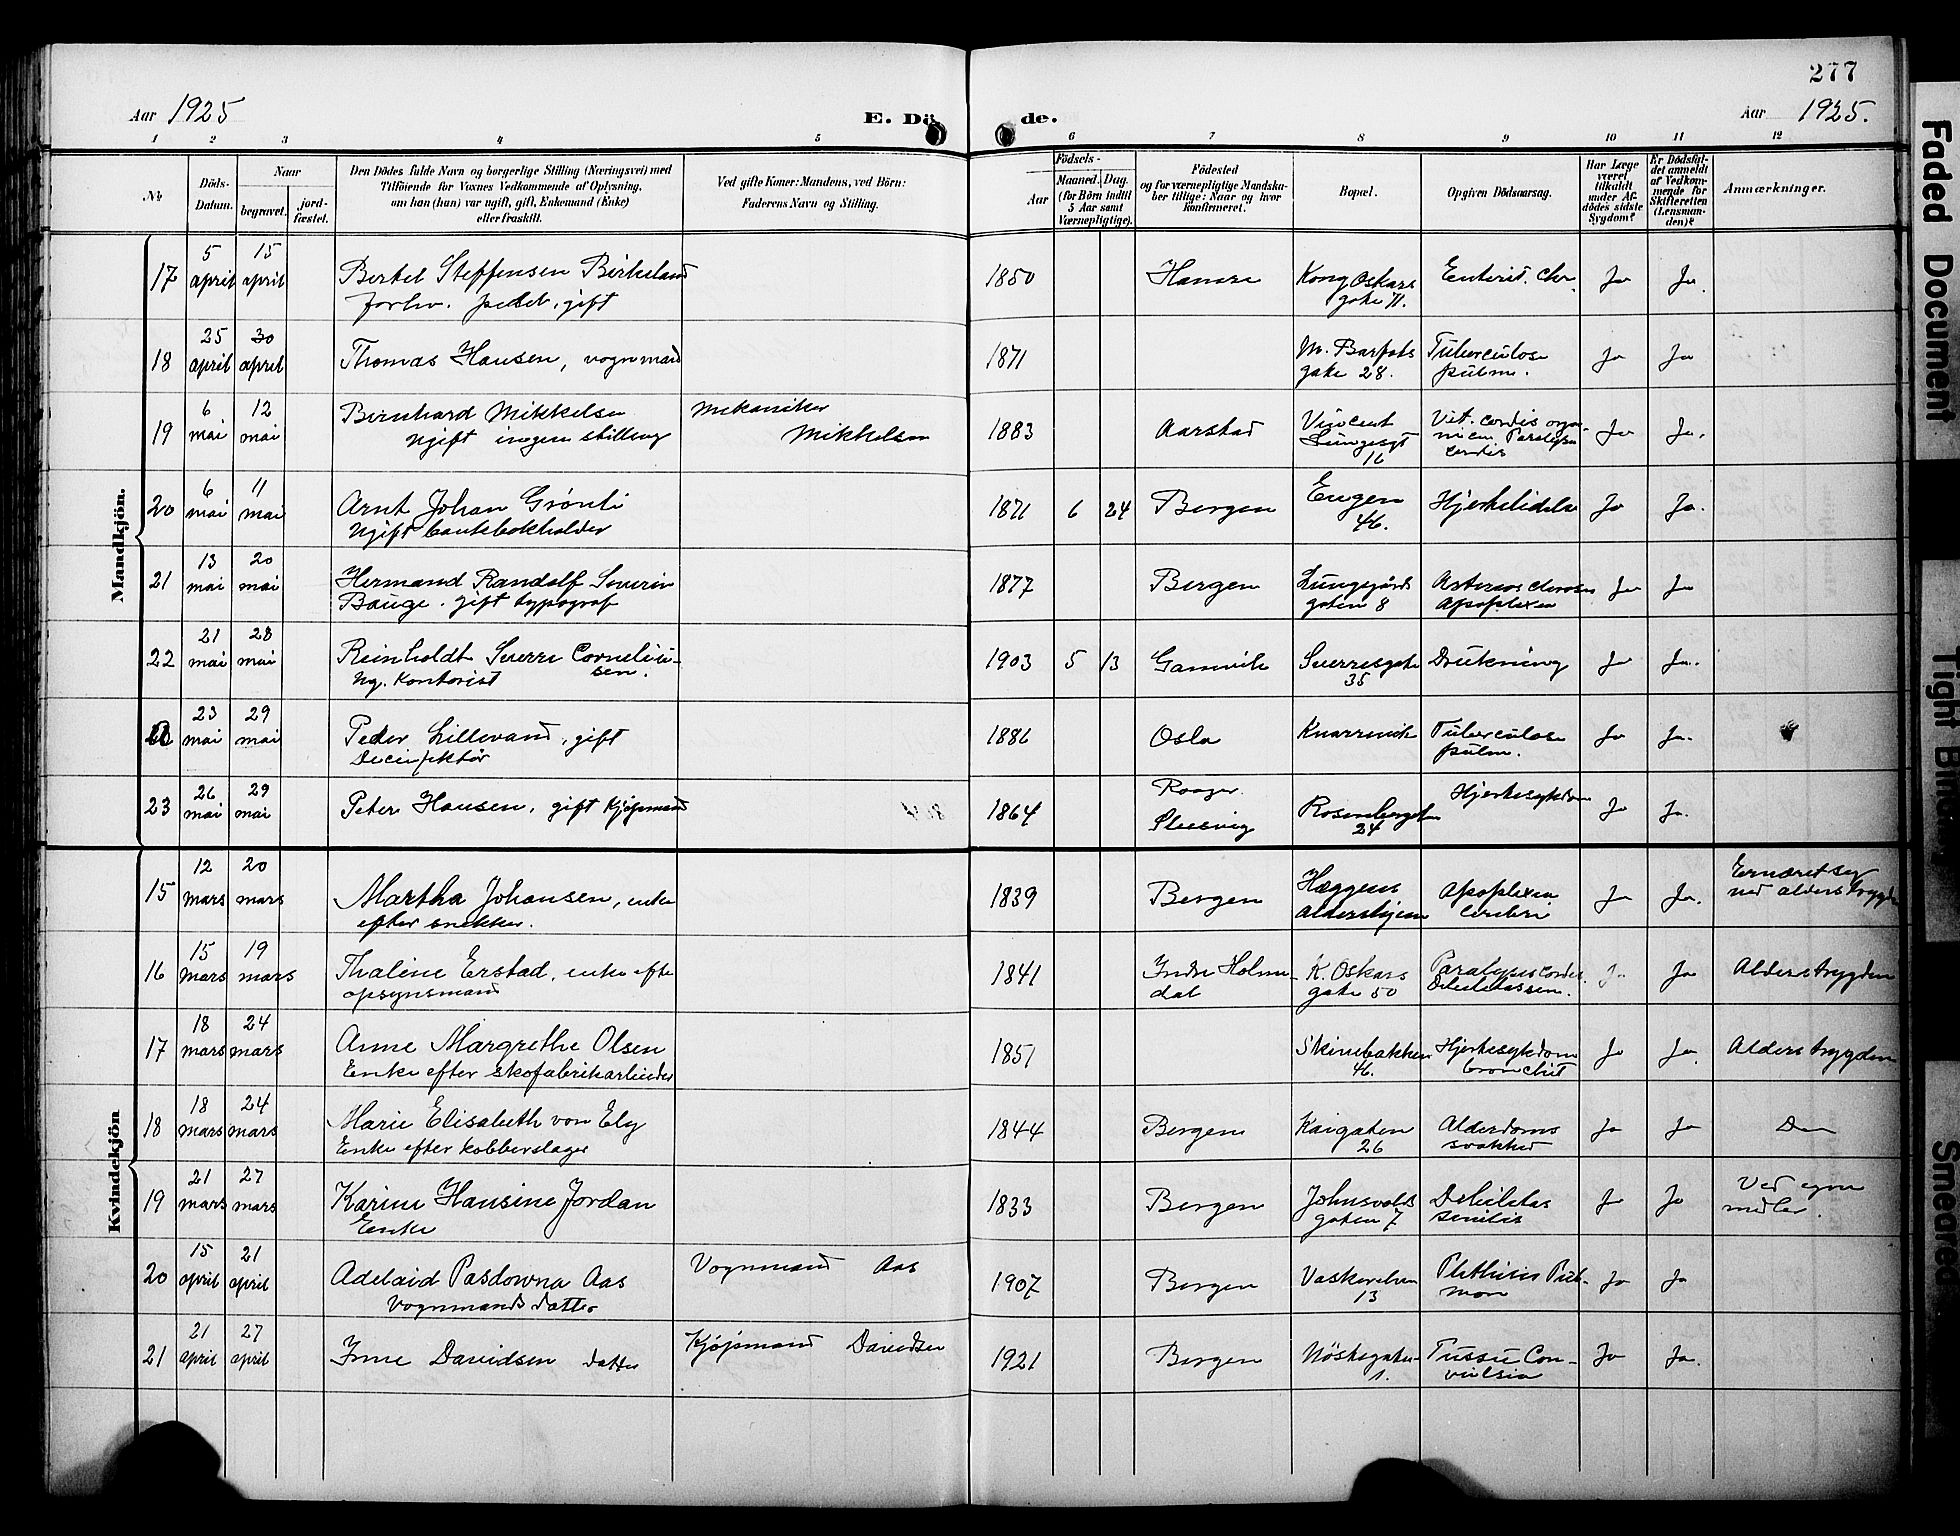 277
Aar 1925 E. Dö de. Aar 1925.
1 2 3 4 5 6 7 8 9 10 11 12
No Döds-Datum. Naar begravet. jord-fæstet. Den Dödes fulde Navn og borgerlige Stilling (Næringsvei) med Tilföiende for Voxnes Vedkommende af Oplysning, om han (hun) var ugift, gift, Enkemand (Enke) eller fraskilt. Ved gifte Koner: Mandens, ved Börn: Faderens Navn og Stilling. Födsels- Aar Maaned. Dag. (for Börn indtil 5 Aar samt Værnepligtige). Födested og for værnepligtige Mandskaber tillige: Naar og hvor konfirmeret. Bopæl. Opgiven Dödsaarsag. Har Læge været tilkaldt under Afdödes sidste Sygdom? Er Dödsfaldet anmeldt af Vedkommende for Skifteretten (Lensmanden)? Anmærkninger.
Mandkjön.
17 5 april 15 april Bertel Steffensen Birkeland 1850 Kong Oskars gate 71. Enterit. chr. Ja Ja.
forhv. pedel, gift
18 25 april 30 april Thomas Hansen, vognmand 1871 M. Barfots gate 28. Tuberculose pulm. Ja Ja
19 6 mai 12 mai Bernhard Mikkelsen Mekaniker Mikkelsen 1883 Aarstad Vincent Lungesgt 16 Vit. cordis organicum Paralysis cordis Ja Ja.
ugift ingen stilling
20 6 mai 11 mai Arnt Johan Grønli 1871 6 24 Bergen Engen 46. Hjertelidelse Ja Ja.
ugift bankbokholder
21 13 mai 20 mai Hermand Randolf Severin 1877 Bergen Lungegårds gaten 8 Arteriosclerose Apoplexia Ja Ja
Bauge. gift typograf
22 21 mai 28 mai Reinholdt Sverre Corneliussen. 1903 5 13 Gamvik Sverresgate 35 Drukning Ja Ja.
Ug. Kontorist
23 mai 29 mai Peder Lillevand, gift 1886 Oslo Knarrevik Tuberculose pulm. Ja Ja.
Decinfektør
23 26 mai 29 mai Peter Hansen, gift kjøpmand 1864 Slesvig Rosenbergsgaten 24 Hjertesykdom Ja Ja.
Kvindekjön
15 12 mars 20 mars Martha Johansen, enke 1839 Bergen Hæggens Aldershjem Apoplexia cerebri Ja Ja. Ernæret seg ved alderstrygden
efter snekker.
16 15 mars 19 mars Thaline Erstad, enke efter 1841 Indre Holmedal K. Oskars gate 50 Paralysis cordis Debilitas sen. Ja Ja Alderstrygden
opsynsmand
17 18 mars 24 mars Anne Margrethe Olsen 1851 Skivebakken 46. Hjertesykdom bronchit Ja Ja. Alderstrygden
Enke efter skofabrikarbeider
18 18 mars 24 mars Marie Elisabeth von Ely 1844 Bergen Kaigaten 26 Alderdoms svakhed Ja Ja Do
Enke efter kobberslager
19 21 mars 27 mars Karine Hansine Jordan 1833 Bergen Johnsvolds gaten 7 Debilitas senilis Ja Ja Ved egne midler.
Enke
20 15 april 21 april Adelaid Pasdowna Aas Vognmand Aas 1907 Bergen Vaskerelven 13 Phthisis Pulmon Ja Ja
Vognmands datter
21 21 april 27 april Irene Davidsen datter Kjøpmand Davidsen 1921 Bergen Nöstegaten 1. Tussis Convulsiva Ja Ja.
Faded Document
Tight Bind
Snedred